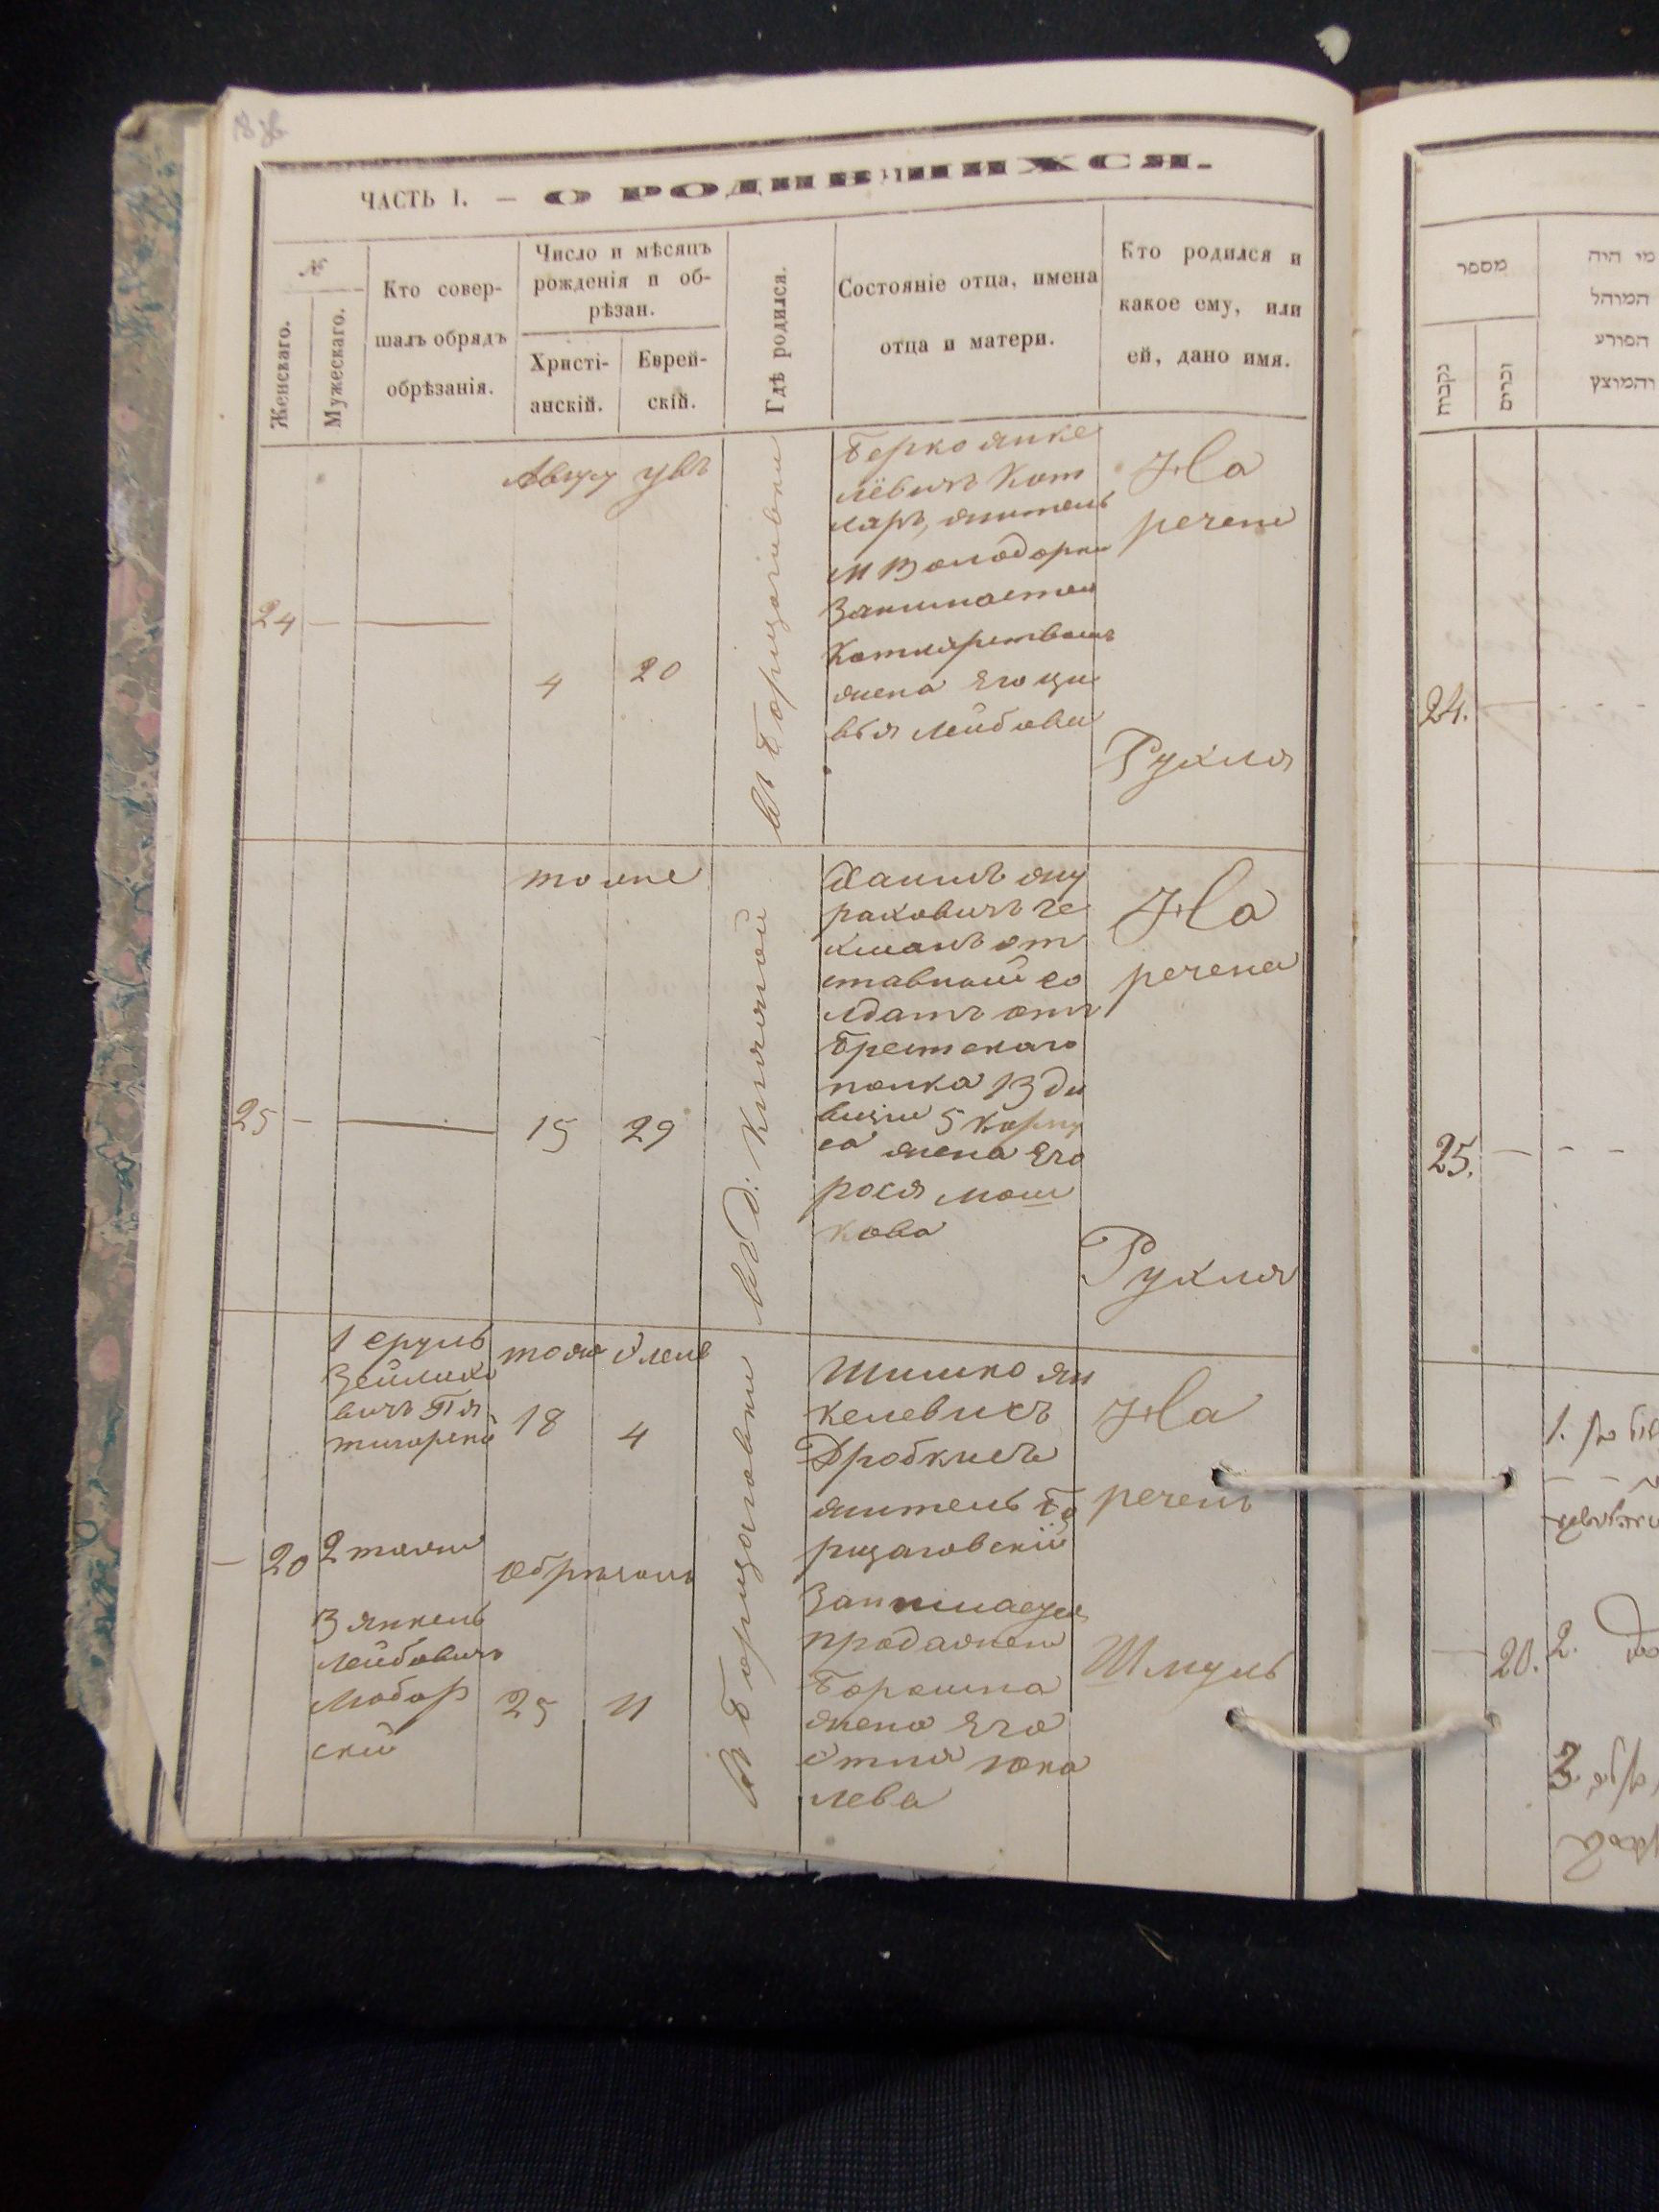 ЧАСТЬ I. — О РОДИВШИХСЯ.
№
Женскаго.
Мужескаго.
Кто совер-
шалъ обрядъ
обрѣзанія.
Число и мѣсяцъ
рожденія и об-
рѣзан.
Христі-
анскій.
Еврей-
скій.
Гдѣ родился.
Состояніе отца, имена
отца и матери.
Кто родился и
какое ему, или
ей, дано имя.
24 — —
Август
4
20
Берко Янке
лёвичъ Кот
ляръ, житель
М Володарки
Занимается
Котлярствомъ
жена Его Ци
вья Лейбова
На
речена
Рухля
25 — —
тоже
15
29
Хаимъ
раховичъ Ге
хманъ от
ставной со
лдатъ отъ
Брестскаго
полка 13 ди
визіи 5 корпу
са жена Его
рося Мош
кова
На
речена
Рухля
— 20
1 Сруль
Зейлихо
вичъ Пя
тигорскій
2 тоже
3 Янкель
Лейбовичъ
Любар
скій
тоже
Элелъ
18
4
обрѣзанъ
25
11
Шишко Ян
келевичъ
Дробкисъ
житель Бо
рщаговскій
Занимается
продажею
Борошна
жена Его
Этля Юко
лева
На
реченъ
Шмуль
מספר
נקבות
זכרים
מי היה
המוהל
הפורע
והמוצץ
24.
25.
20.
1.
2.
3.